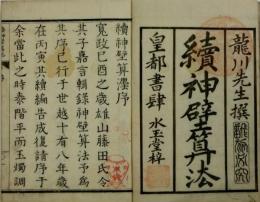 龍川先生撰
續神壁算法
皇都書肆 水玉堂梓
續神壁算法序
寛政己酉之歳雄山藤田氏令
其子嘉言輯録神壁算法予為
其序已行于世越十有八年歳
在丙寅其續編告成復請序于
余當此之時泰階平而玉燭調